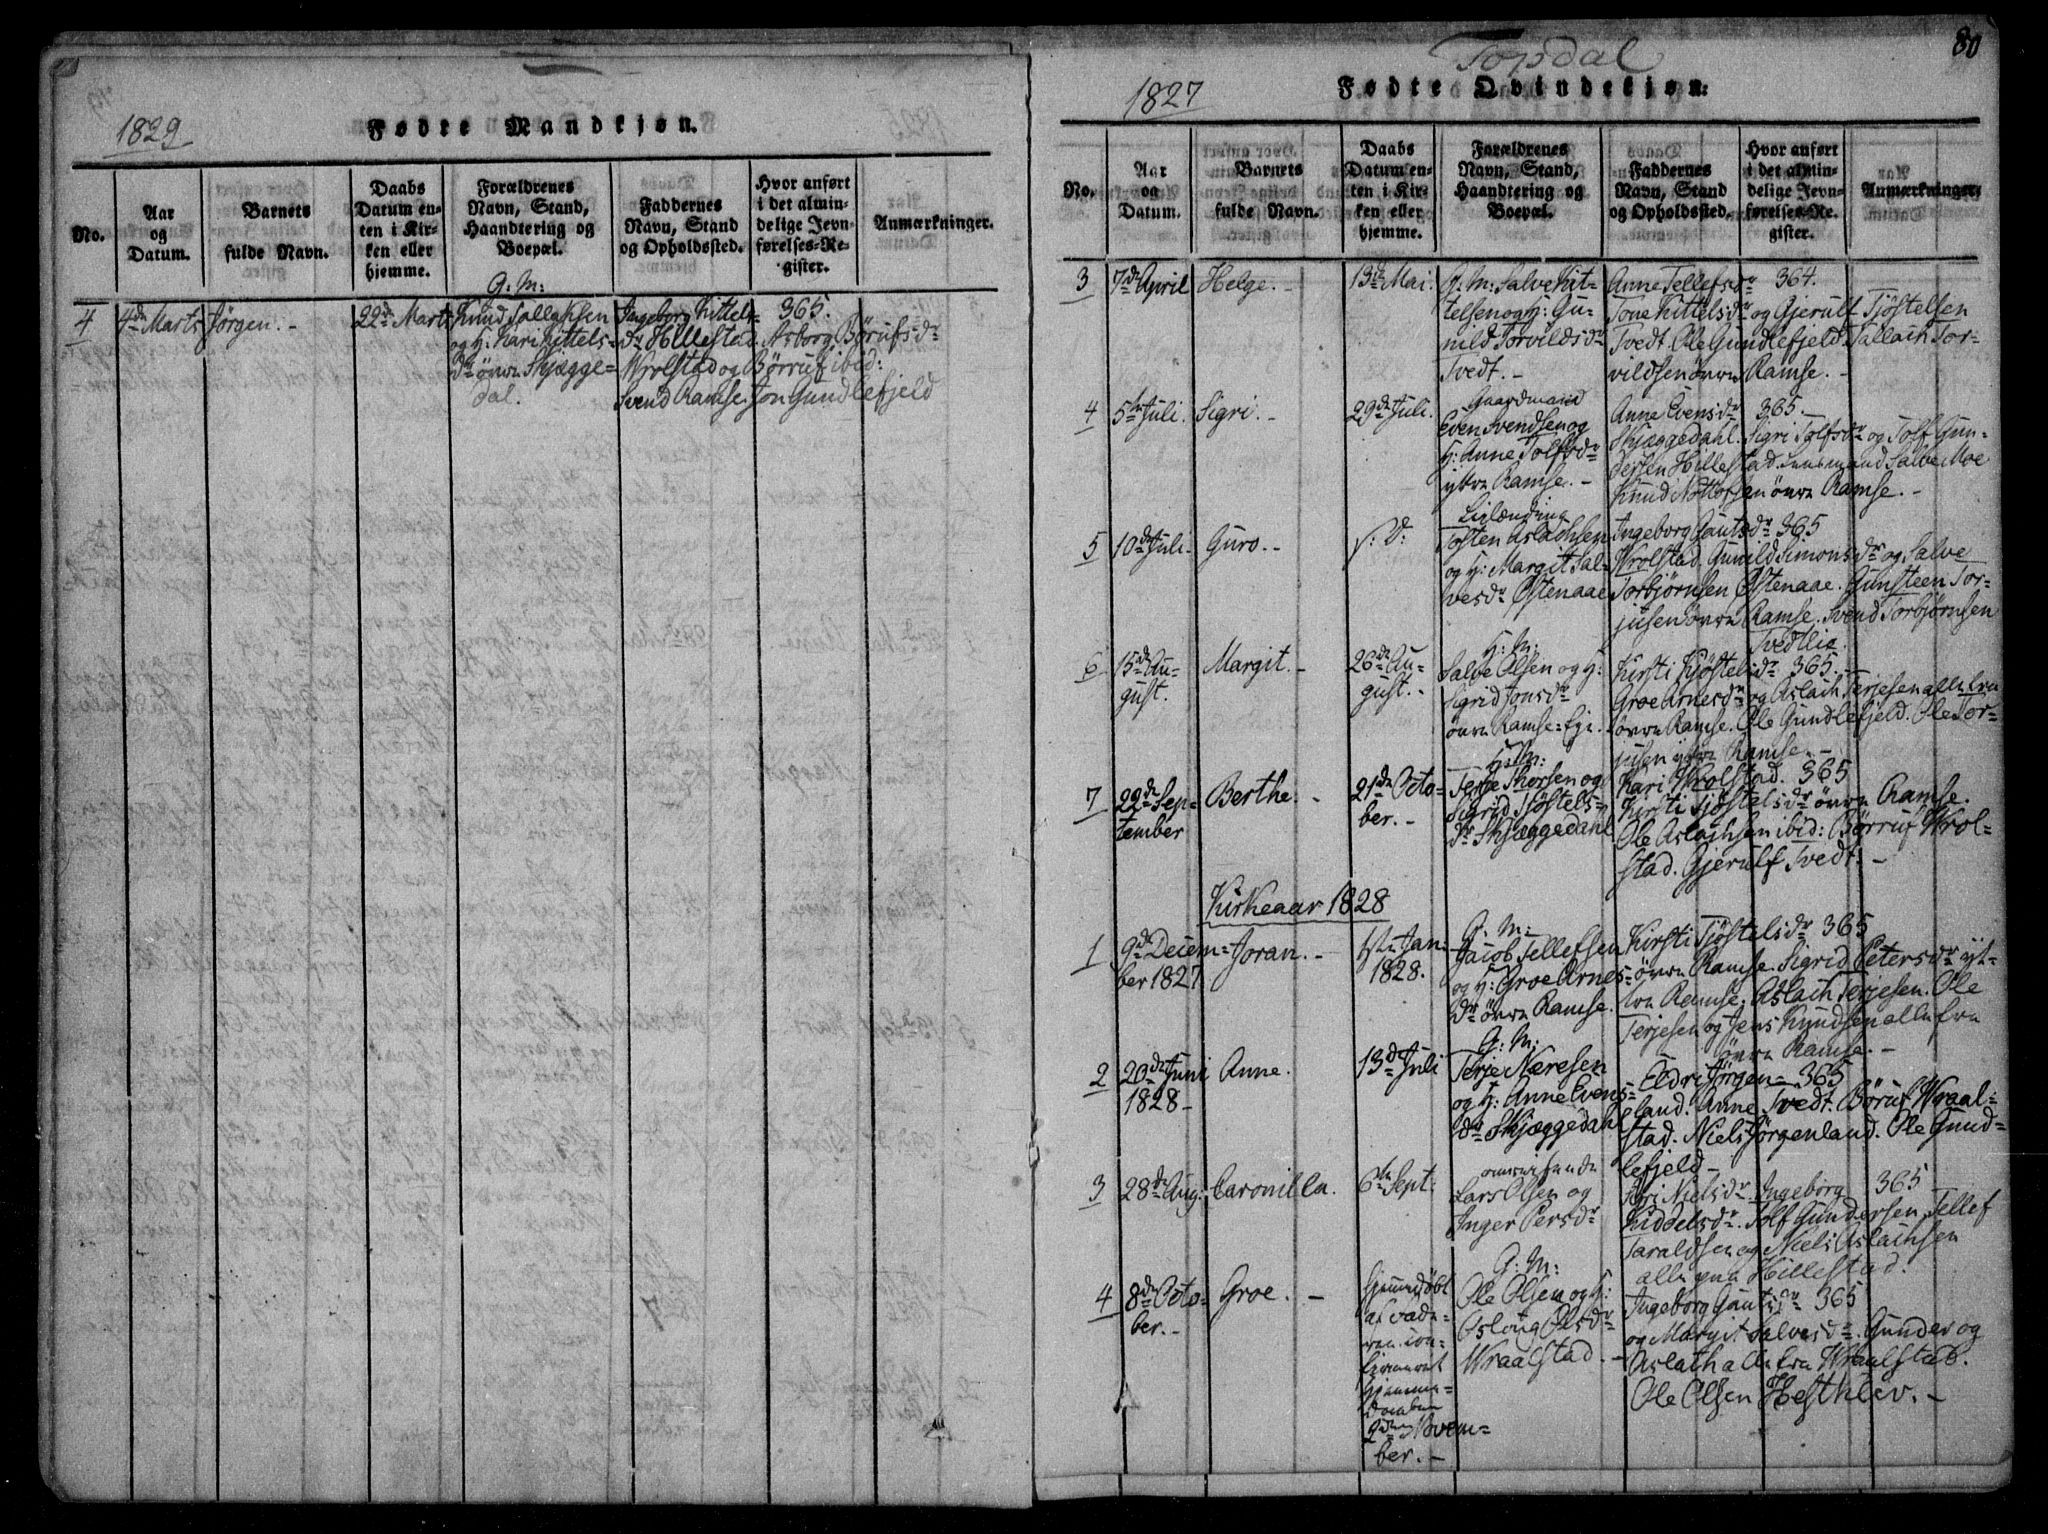 1829
Fødte Mandkjøn.
No.
Aar og Datum.
Barnets fulde Navn.
Daabs Datum enten i Kirken eller hjemme.
Forældrenes Navn, Stand, Haandtering og Boepæl.
Faddernes Navn, Stand og Opholdssted.
Hvor anført i det almindelige Jevnførelses-Register.
Anmærkninger.
4
4de Marts
Jørgen. -
22de Marts
G. M:
Knud Tallaksen
og H: Kari Kittels=
dr øvre Skjægge=
dal.
Ingeborg Kittels=
dr Hillestad. Asborg Børufsdr
Wrolstad og Børruf ibid:
Svend Ramse. Jon Gundlefjeld
365.
80
Topdal
1827
Fødte Qvindekjøn.
No.
Aar og Datum.
Barnets fulde Navn.
Daabs Datum enten i Kirken eller hjemme.
Forældrenes Navn, Stand, Haandtering og Boepæl.
Faddernes Navn, Stand og Opholdssted.
Hvor anført i det almindelige Jevnførelses-Register.
Anmærkninger.
3
7de April
Helge. -
13de Mai.
G. M: Salve Kit=
telsen og H: Gu=
nild Torvildsdr
Tvedt. -
Anne Tellefsdr 364.
Tone Kittelsdr og Gjerulf Tjöstelsen
Tvedt. Ole Gundlefjeld. Tallach Tor=
vildsen øvre Ramse. -
4
5te Juli.
Sigri. -
29de Juli.
Gaardmand
Even Svendsen og
H: Anne Tolfsdr
ytre Ramse. -
Anne Evensdr 365.
Skjæggedahl. Sigri Tolfsdr og Tolf Gun=
dersen Hillestad. Salve Moe
Knud Nottolfsen øvre Ramse. -
5
10de Juli.
Guro. -
s: D:
Leilænding
Tosten Aslachsen
og H: Margit Sal=
vesdr Østenaae
Ingeborg Gautsdr 365
Wrolstad. Gunild Simonsdr og Salve
Torbjørnsen Østenaae. Gunsteen Tor=
jusen øvre Ramse. Svend Torbjørnsen
Tvedlia.
6
15de Au=
gust.
Margit. -
26de Au=
gust. -
H: M:
Salve Olsen og H:
Sigrid Jonsdr
øvre Ramse=Eje.
Kirsti Kjöstelsdr 365. -
Groe Arnesdr og Aslach Terjesen alle fra
øvre Ramse. Ole Gundlefjeld. Ole Tor=
jusen ytre Ramse. -
7
22de Sep=
tember
Berthe. -
21de Octo=
ber. -
G. M:
Terje Thorsen og
Sigrid Tjöstels=
dr Skjæggedahl
Kari Wrolstad. 365
Kirsti Tjöstelsdr øvre Ramse.
Ole Aslachsen ibid: Børruf Wrol=
stad. Gjerulf Tvedt. -
Kirkeaar 1828
1
9de Decem=
ber 1827
Joran. -
1ste Jan:
1828.
G. M:
Jacob Tellefsen
og H: Groe Arnes=
dr øvre Ramse.
Kirsti Tjöstelsdr 365
øvre Ramse. Sigrid Petersdr yt=
tre Ramse. Aslach Terjesen. Ole
Terjesen og Jens Knudsen alle fra
øvre Ramse. -
2
20de Juni
1828 -
Anne.
13de Juli
G: M:
Terje Næresen
og H: Anne Evens=
dr Skjæggedahl
Eldri Jørgen= 365
land. Anne Tvedt. Børuf Wraal=
stad. Niels Jørgenland. Ole Gund=
lefjeld -
3
28de Aug:
Caronilla.
6te Sept:
omreisende
Lars Olsen og
Inger Persdr
Siri Nielsdr. Ingeborg 365
Kiddelsdr. Tolf Gundersen, Tellef
Taraldsen og Niels Aslachsen
alle paa Hillestad.
4
8de Octo=
ber. -
Groe. -
hjemmedöbt
af
Daaben
2den Novem=
ber. -
G: M:
Ole Olsen og H:
Aslaug Olsdr
Wraalstad. -
Ingeborg Gautsdr 365
og Margit Salvesdr. Gunder og
Aslach alle fra Wraalstad.
Ole Olsen Hesthlev. -